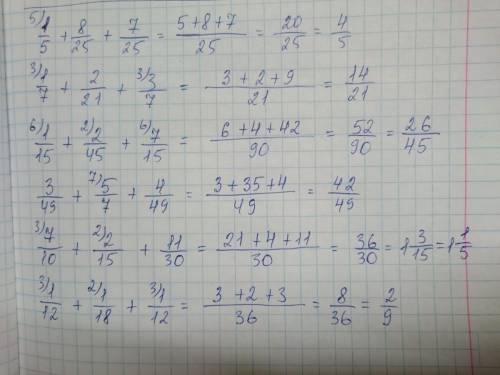 5) 1/5 + 8/25 + 7/25 = (5+8+7)/25 = 20/25 = 4/5
3) 1/7 + 2/21 + 3) 3/7 = (3+2+9)/21 = 14/21
6) 1/15 + 2) 2/45 + 6) 7/15 = (6+4+42)/90 = 52/90 = 26/45
3/49 + 7) 5/7 + 4/49 = (3+35+4)/49 = 42/49
3) 7/10 + 2) 2/15 + 11/30 = (21+4+11)/30 = 36/30 = 1 3/15 = 1 1/5
3) 1/12 + 2) 1/18 + 3) 1/12 = (3+2+3)/36 = 8/36 = 2/9